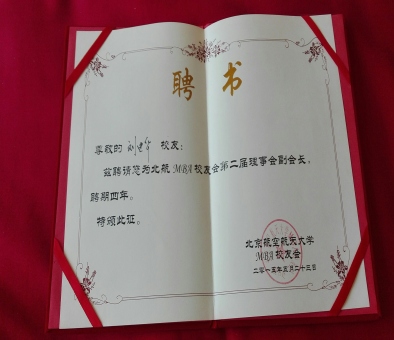 聘书
尊敬的 校友：
兹聘请您为北航MBA校友会第二届理事会副会长，
聘期四年。
特颁此证。
北京航空航天大学
MBA校友会
二零一五年五月二十三日